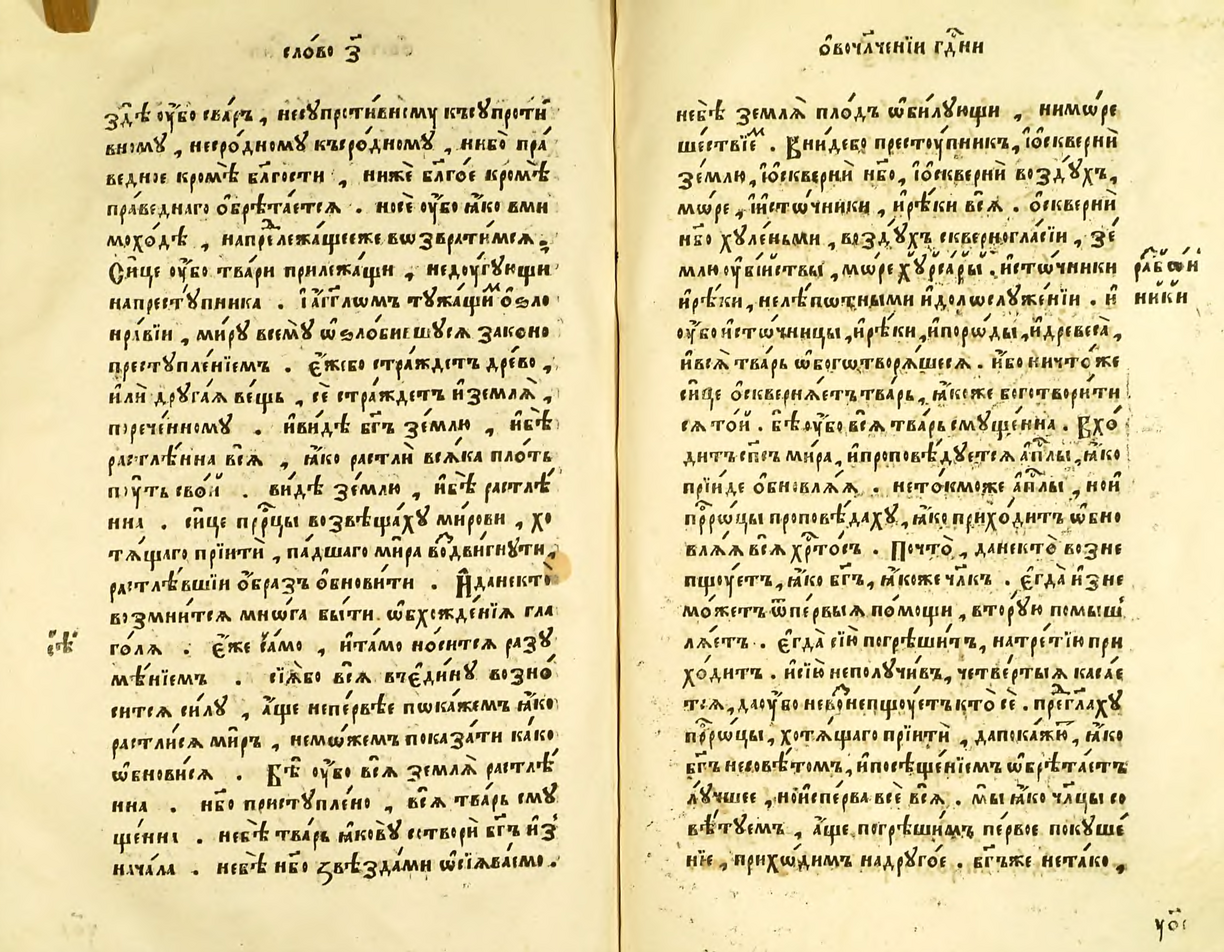 сло́во з҃
здѣ ᲂу҆́бо сва́ръ , несꙋпроти́вномꙋ късꙋпроти
вномꙋ , несро́дномꙋ късро́дномꙋ , нибо пра́
ведное кромѣ̀ бл҃гости , нижѐ бл҃го́е кромѣ̀
пра́веднаго ѻ҆брѣта́ется . носе ᲂу҆́бо ꙗ҆́ко вми
мохо́дѣ , напре́лежащееже вꙁвратимся .
Си́це ᲂу҆́бо тва́ри прилежа́щи , недꙋ́гꙋющи
напресту́пника . і҆а҆́гг҃лѡмъ тꙋжа́щимъ ѻ҆ѕло
нра́вїи , ми́рꙋ всемꙋ̀ ѡ҆ѕло́бившꙋся зако́но
престꙋпле́нїемъ . є҆́жебо стра́ждетъ дре́во ,
и҆лѝ дрꙋга́я ве́щь , сѐ стра́ждетъ и҆земля̀ ,
порече́нномꙋ . и҆ви́дѣ бг҃ъ зе́млю , и҆бѣ̀
растлѣ́нна всѧ̀ , ꙗ҆́ко растлѝ вся́ка пло́ть
пꙋ́ть сво́й . ви́дѣ зе́млю , и҆бѣ̀ растлѣ́
нна . си́це прⷪ҇рцы возвѣща́хꙋ ми́рови , хо
тя́щаго прїитѝ , па́дшаго ми́ра водви́гнꙋти ,
растлѣ́вшїи ѻ҆́бразъ ѻ҆бнови́ти . И҆данекто̀
возмни́тся мнѡ́га бы́ти ѡ҆бхожде́нїя гла
го́ля . є҆́же са́мо , и҆та́мо но́сится разꙋ
мѣ́нїемъ . сїѧ̀бо всѧ̀ вчеди́нꙋ возно́
сится си́лꙋ , а҆́ще непе́рвѣе пока́жемъ ꙗ҆́ко
растли́ся ми́ръ , немо́жемъ показа́ти ка́ко
ѡ҆бнови́ся . Бѣ̀ ᲂу҆́бо всѧ̀ земля̀ растлѣ́
нна . нб҃о пристꙋпле́но , всѧ̀ тва́рь смꙋ
ще́нна . небѣ̀ тва́рь ꙗ҆ковꙋ̀ сотворѝ бг҃ъ и҆з
нача́ла . небѣ̀ нб҃о ѕвѣзда́ми ѡ҆сїѧва́емо .
ѻ҆воч҃лче́нїи гдⷭ҇ни
небѣ̀ земля̀ пло́дъ ѡ҆би́лꙋющи , нимо́ре
ше́ствїемъ . Вни́дебо престꙋ́пникъ , і҆ѡскверни́
зе́млю , і҆ѡсквернѝ нб҃о , і҆ѡсквернѝ во́здꙋхъ ,
мо́ре , і҆исто́чники , и҆рѣ́ки всѧ̀ . ѻ҆сквернѝ
нб҃о хꙋле́ньми , во́здꙋхъ скверногла́сїи , зе́
млю ᲂу҆бі́йствы , мо́ре хꙋрса́ры . и҆сто́чники
и҆рѣ́ки , нелѣ́потными и҆доло́слꙋже́нїи . и҆
ᲂу҆́бо и҆сто́чницы , и҆рѣ́ки , и҆поро́ды , и҆древеса̀ ,
и҆всѧ̀ тва́рь ѡ҆богѡтворя́шеся . и҆́бо ничто́же
си́це ѻ҆скверня́етъ тва́рь , ꙗ҆́коже боготвори́ти
ся то́й . бѣ̀ ᲂу҆́бо всѧ̀ тва́рь смꙋще́нна . Вхо́
дитъ сп҃съ ми́ра , и҆проповѣ́дꙋется а҆пⷭ҇лы , ꙗ҆́ко
прїи́де ѻ҆бновля́я . нето́кможе а҆пⷭ҇лы , но́и
прⷪ҇рѡцы проповѣ́дахꙋ , ꙗ҆́ко прихо́дитъ ѡ҆бно
вля́я всѧ̀ хрⷭ҇то́съ . Почто̀ , данекто̀ возне
пщꙋ́етъ , ꙗ҆́ко бг҃ъ , ꙗ҆́коже чл҃къ . є҆гда̀ и҆зне
мо́жетъ ѿпе́рвыя по́мощи , вторꙋ́ю помыш
ля́етъ . є҆гда̀ сїю̀ погрѣши́тъ , натре́тїи при
хо́дитъ . и҆сїю̀ неполꙋчи́въ , четве́ртыя каса́е
тся , даᲂу҆́бо нево непщꙋ́етъ кто̀ сѐ . прег҃лахꙋ
прⷪ҇рѡцы , хотя́щаго прїитѝ , дапокажꙋ̀ , ꙗ҆́ко
бг҃ъ несовѣ́томъ , и҆посѣще́нїемъ ѡ҆брѣта́етъ
лꙋ́чшее , но́исперва всѐ всѧ̀ . мы̀ ꙗ҆́ко чл҃цы со
вѣ́тꙋемъ , а҆́ще погрѣши́мъ пе́рвое покꙋше́
нїе , прихо́димъ надрꙋго́е . бг҃ъже нета́ко ,